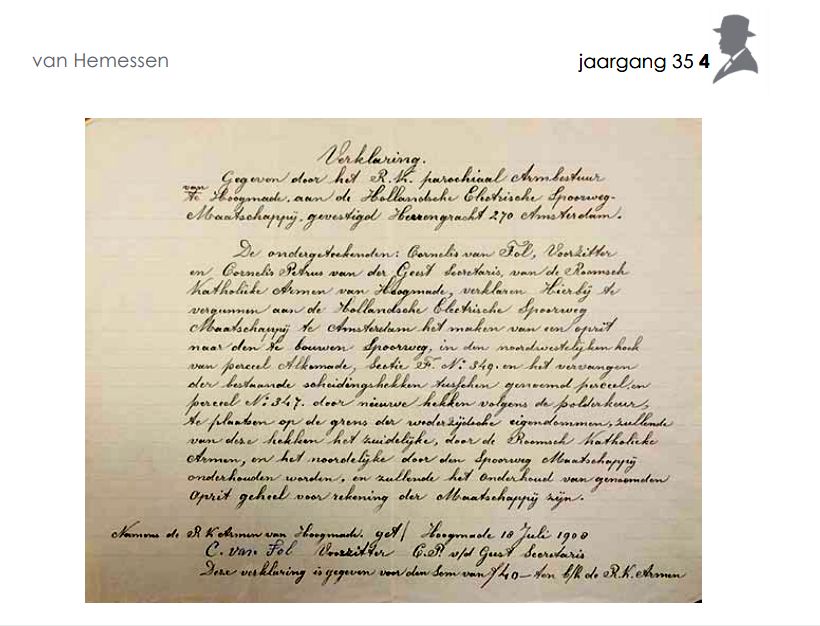 van Hemessen
jaargang 35 4
Verklaring.
Gegeven door het R. K. parochiaal Armbestuur
van
te Hoogmade, aan de Hollandsche Electrische Spoorweg-
Maatschappij. gevestigd Herrengracht 270 Amsterdam.
De ondergeteekenden: Cornelis van Tol, Voorzitter
en Cornelis Petrus van der Geest Secretaris, van de Roomsch
Katholieke Armen van Hoogmade, verklaren Hierbij te
vergunnen aan de Hollandsche Electrische Spoorweg
Maatschappij te Amsterdam het maken van een oprit
naar den te bouwen Spoorweg, in den noordwestelijken hoek
van perceel Alkemade, Sectie F. No. 349. en het vervangen
der bestaande scheidingshekken tusschen genoemd perceel en
perceel No. 347. door nieuwe hekken volgens de polderkeur,
te plaatsen op de grens der wederzijdsche eigendommen, zullende
van deze hekken het zuidelijke, door de Roomsch Katholieke
Armen, en het noordelijke door den Spoorweg Maatschappij
onderhouden worden, en zullende het onderhoud van genoemden
oprit geheel voor rekening der Maatschappij zijn.
Namens de R K Armen van Hoogmade. get/ Hoogmade 18 Juli 1908
C. van Tol Voorzitter C. P. v/d Geest Secretaris
Deze verklaring is gegeven voor den Som van f 40 – ten b/h de R. K. Armen